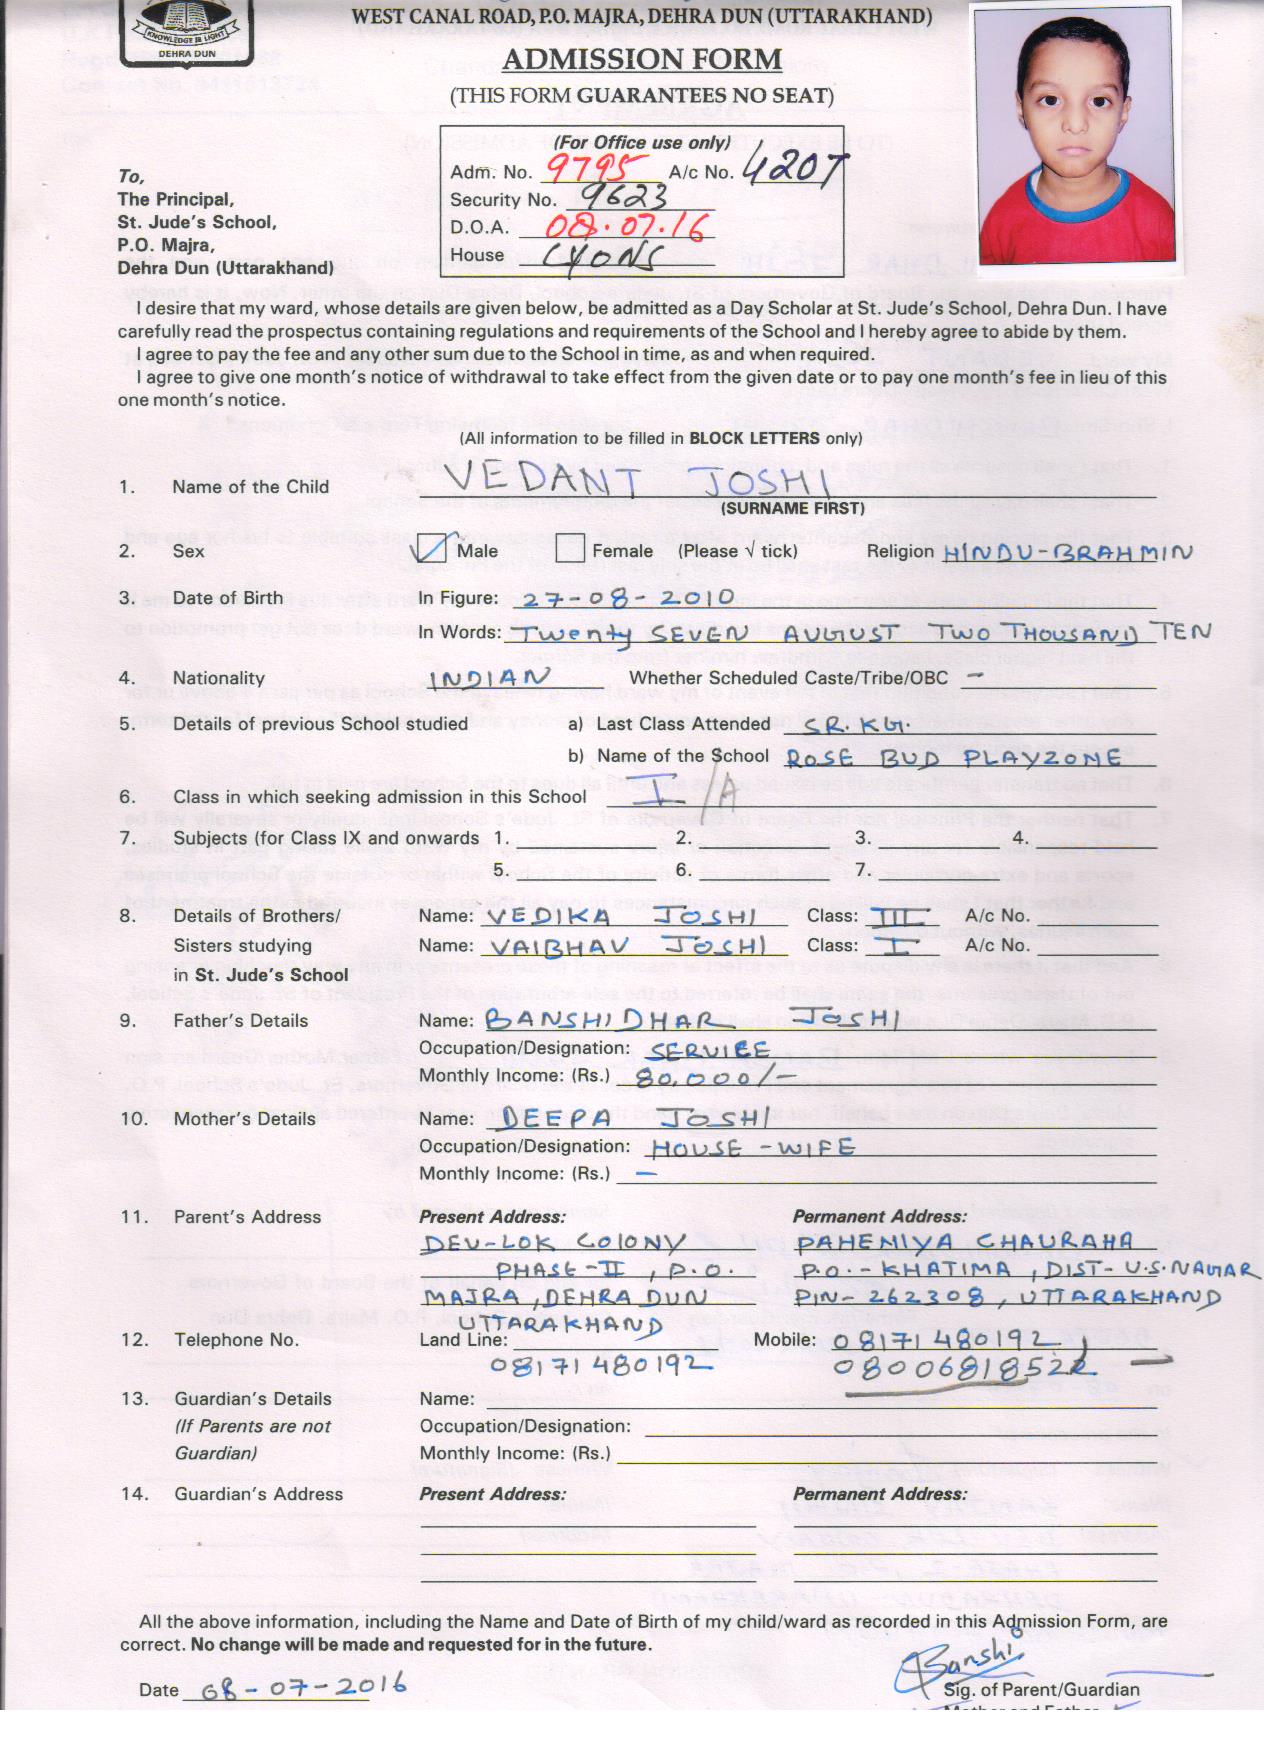 KNOWLEDGE IS LIGHT
DEHRA DUN
WEST CANAL ROAD, P.O. MAJRA, DEHRA DUN (UTTARAKHAND)
ADMISSION FORM
(THIS FORM GUARANTEES NO SEAT)
(For Office use only)
Adm. No. 9795 A/c No. 4207
Security No. 9623
D.O.A. 08.07.16
House LYONS
To,
The Principal,
St. Jude's School,
P.O. Majra,
Dehra Dun (Uttarakhand)
I desire that my ward, whose details are given below, be admitted as a Day Scholar at St. Jude's School, Dehra Dun. I have
carefully read the prospectus containing regulations and requirements of the School and I hereby agree to abide by them.
I agree to pay the fee and any other sum due to the School in time, as and when required.
I agree to give one month's notice of withdrawal to take effect from the given date or to pay one month's fee in lieu of this
one month's notice.
(All information to be filled in BLOCK LETTERS only)
1. Name of the Child VEDANT JOSHI
(SURNAME FIRST)
2. Sex Male Female (Please √ tick) Religion HINDU-BRAHMIN
3. Date of Birth In Figure: 27-08-2010
In Words: Twenty SEVEN AUGUST TWO THOUSAND TEN
4. Nationality INDIAN Whether Scheduled Caste/Tribe/OBC -
5. Details of previous School studied a) Last Class Attended SR. KG.
b) Name of the School ROSE BUD PLAYZONE
6. Class in which seeking admission in this School I /A
7. Subjects (for Class IX and onwards 1. 2. 3. 4.
5. 6. 7.
8. Details of Brothers/ Name: VEDIKA JOSHI Class: III A/c No.
Sisters studying Name: VAIBHAV JOSHI Class: I A/c No.
in St. Jude's School
9. Father's Details Name: BANSHIDHAR JOSHI
Occupation/Designation: SERVICE
Monthly Income: (Rs.) 80,000/-
10. Mother's Details Name: DEEPA JOSHI
Occupation/Designation: HOUSE-WIFE
Monthly Income: (Rs.) -
11. Parent's Address Present Address: Permanent Address:
DEV-LOK COLONY PAHENIYA CHAURAHA
PHASE-II, P.O. P.O.-KHATIMA, DIST-U.S.NAGAR
MAJRA, DEHRA DUN PIN-262308, UTTARAKHAND
UTTARAKHAND
12. Telephone No. Land Line: Mobile: 08171480192
08171480192 08006818522
13. Guardian's Details Name:
(If Parents are not Occupation/Designation:
Guardian) Monthly Income: (Rs.)
14. Guardian's Address Present Address: Permanent Address:
All the above information, including the Name and Date of Birth of my child/ward as recorded in this Admission Form, are
correct. No change will be made and requested for in the future.
Banshi
Date 08-07-2016 Sig. of Parent/Guardian